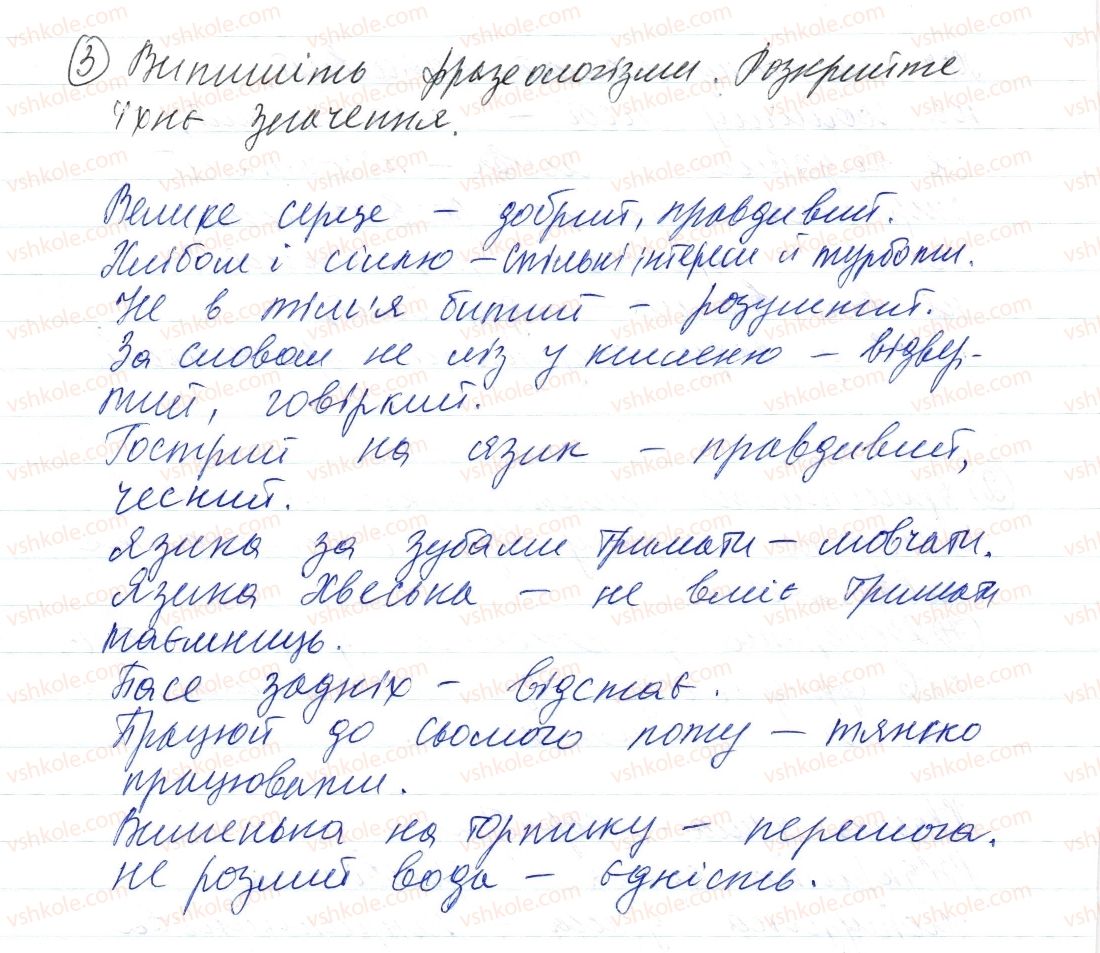 ③ Випишіть фразеологізми. Розкрийте
їхнє значення.
Велике серце – добрий, правдивий.
Хлібом і сіллю – спільні інтереси й турботи.
Не в тім'я битий – розумний.
За словом не ліз у кишеню – відвер-
тий, говіркий.
Гострий на язик – правдивий,
чесний.
Язика за зубами тримати – мовчати.
Язика Хвеська – не вміє тримати
таємниць.
Пасе задніх – відстає.
Працюй до сьомого поту – тяжко
працювати.
Вишенька на тортику – перемога.
Не розлий вода – єдність.